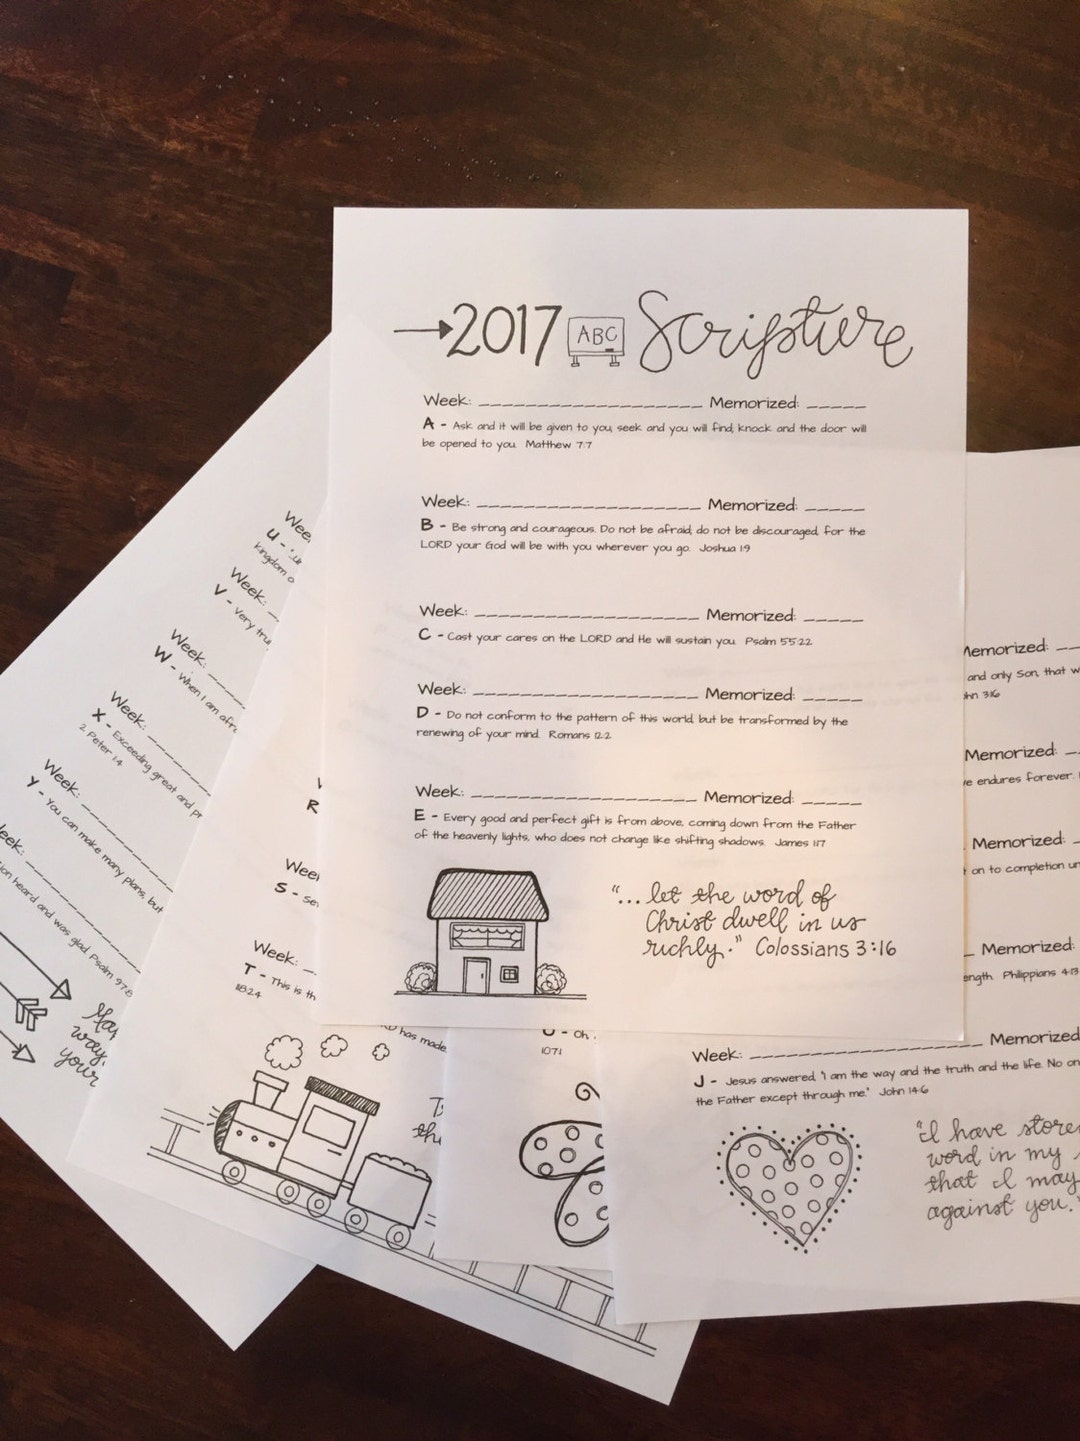 2017 ABC Scripture
Week: ___________________ Memorized: _____
A - Ask and it will be given to you, seek and you will find, knock and the door will
be opened to you. Matthew 7:7
Week: ___________________ Memorized: _____
B - Be strong and courageous. Do not be afraid, do not be discouraged, for the
LORD your God will be with you wherever you go. Joshua 1:9
Week: ___________________ Memorized: _____
C - Cast your cares on the LORD and He will sustain you. Psalm 55:22
Week: ___________________ Memorized: _____
D - Do not conform to the pattern of this world, but be transformed by the
renewing of your mind. Romans 12:2
Week: ___________________ Memorized: _____
E - Every good and perfect gift is from above, coming down from the Father
of the heavenly lights, who does not change like shifting shadows. James 1:17
"...let the word of
Christ dwell in us
richly." Colossians 3:16
U -
kingdom o
Week: _
V - Very tru
Week: ____
W - When I am afr
Week: ______
X - Exceeding great and pr
2 Peter 1:4
Week: ________
Y - You can make many plans, but
eek: __________
on heard and was glad. Psalm 97:8
way,
your
R
S - Se
Week: ___
T - This is th
118:24
has made.
the
O - Oh,
107:1
Memorized: __
and only Son, that w
hn 3:16
Memorized: _
ve endures forever.
Memorized: _
on to completion un
_ Memorized:
ength. Philippians 4:13
Week: ___________________ Memorized:
J - Jesus answered, "I am the way and the truth and the life. No on
the Father except through me." John 14:6
"I have store
word in my
that I may
against you."